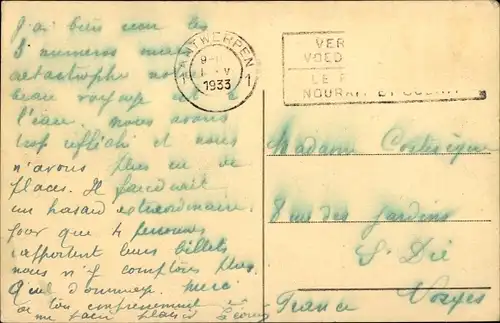 J'ai bien reçu les
3 numéros mais
catastrophe nous
beau voyage est à
l'eau. nous avons
trop réfléchi et nous
n'avons plus eu de
places. Il faudrait
un hasard extraordinaire
pour que 4 personnes
rapportent leurs billets
nous n'y comptons plus.
Quel dommage. merci
de ton empressement à
me faire plaisir
ANTWERPEN 1
9-
V
1933
VER
VOED
LE P
NOURRIT ET
Madame
8 rue des Jardins
St Dié
Vosges
France